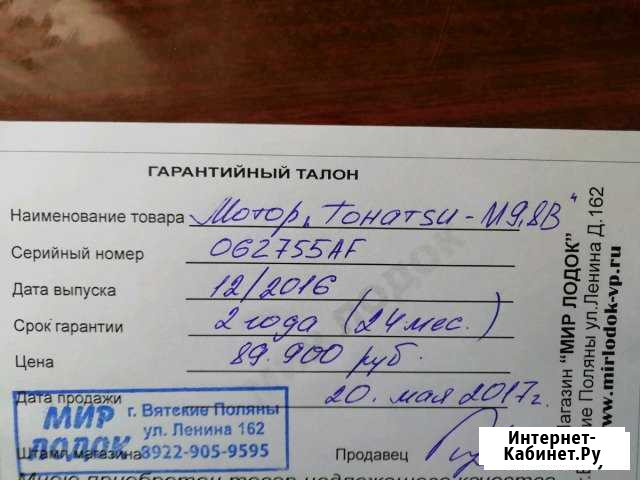 ГАРАНТИЙНЫЙ ТАЛОН
Наименование товара Мотор "Tohatsu-M9,8B"
Серийный номер 062755AF
Дата выпуска 12/2016
Срок гарантии 2 года (24 мес.)
Цена 89.900 руб.
Дата продажи 20. мая 2017г.
МИР ЛОДОК
г. Вятские Поляны
ул. Ленина 162
8922-905-9595
Штамп магазина
Продавец
товар надлежащего качества
"МИР ЛОДОК"
Поляны ул.Ленина Д.162
www.mirlodok-vp.ru
Интернет-
Кабинет.Ру